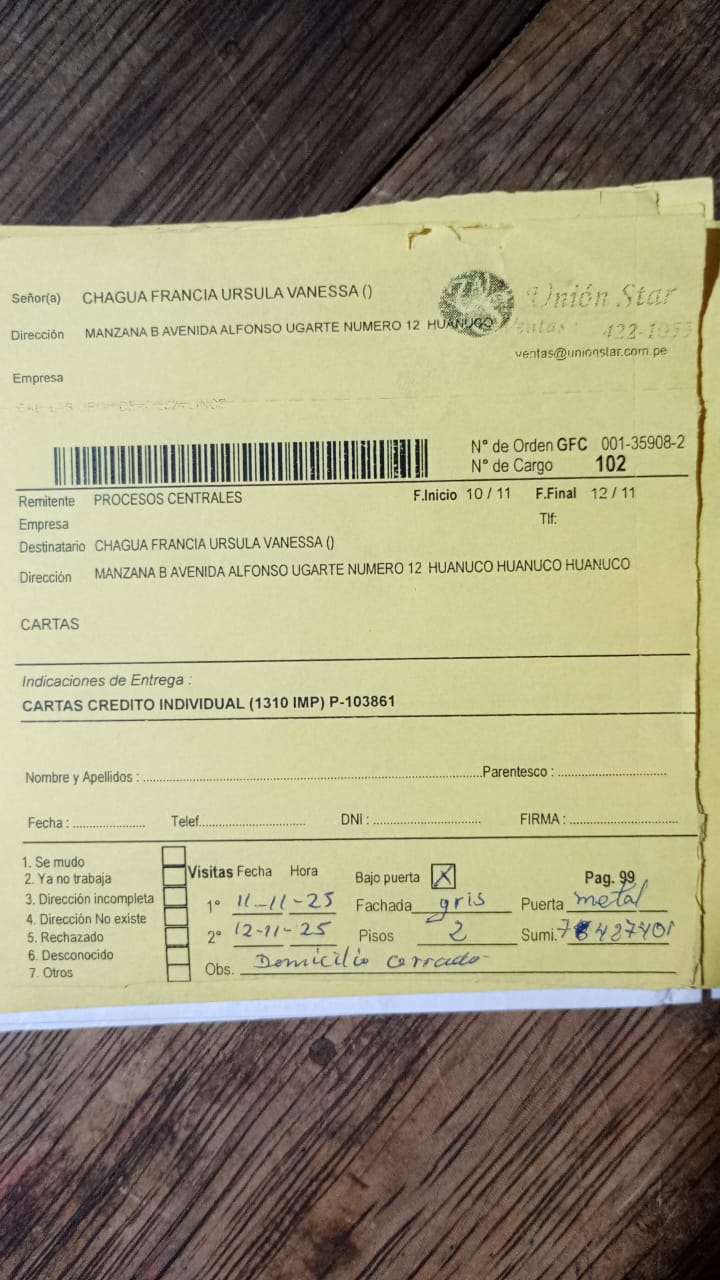 Señor(a) CHAGUA FRANCIA URSULA VANESSA ()
Unión Star
Dirección MANZANA B AVENIDA ALFONSO UGARTE NUMERO 12 HUANUCO
Ventas: 422-1055
ventas@unionstar.com.pe
Empresa
N° de Orden GFC 001-35908-2
N° de Cargo 102
Remitente PROCESOS CENTRALES F.Inicio 10 / 11 F.Final 12 / 11
Empresa Tlf:
Destinatario CHAGUA FRANCIA URSULA VANESSA ()
Dirección MANZANA B AVENIDA ALFONSO UGARTE NUMERO 12 HUANUCO HUANUCO HUANUCO
CARTAS
Indicaciones de Entrega :
CARTAS CREDITO INDIVIDUAL (1310 IMP) P-103861
Nombre y Apellidos : Parentesco :
Fecha : Telef. DNI : FIRMA :
1. Se mudo
2. Ya no trabaja
3. Dirección incompleta
4. Dirección No existe
5. Rechazado
6. Desconocido
7. Otros
Visitas Fecha Hora Bajo puerta X Pag. 99
1° 11-11-25 Fachada gris Puerta metal
2° 12-11-25 Pisos 2 Sumi.
Obs. Domicilio cerrado